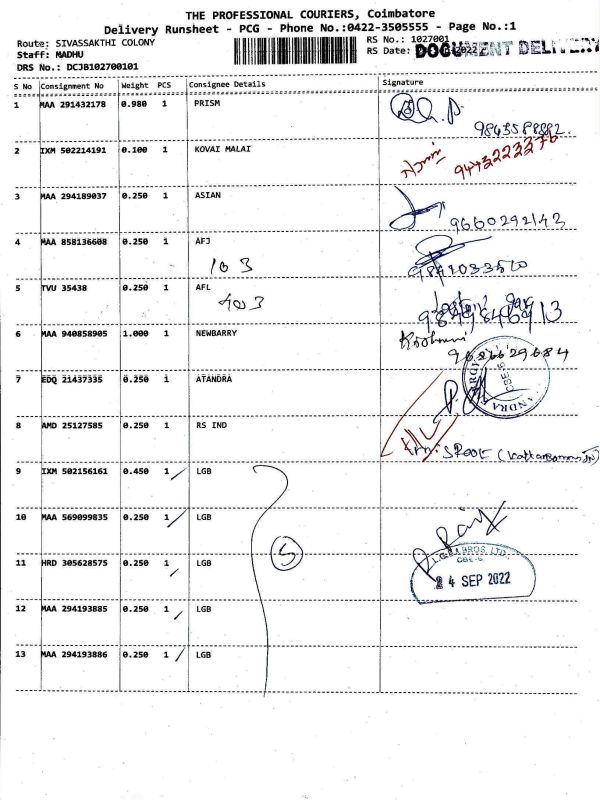 THE PROFESSIONAL COURIERS, Coimbatore
Delivery Runsheet - PCG - Phone No.:0422-3505555 - Page No.:1
Route: SIVASSAKTHI COLONY RS No.: 1027001
Staff: MADHU RS Date: 2022 DOCUMENT DELIVERY
DRS No.: DCJB102700101
S No Consignment No Weight PCS Consignee Details Signature
1 MAA 291432178 0.980 1 PRISM
9843588882
2 IXM 502214191 0.100 1 KOVAI MALAI
3 MAA 294189037 0.250 1 ASIAN
9660292143
4 MAA 858136608 0.250 1 AFJ
103
5 TVU 35438 0.250 1 AFL
403
6 MAA 940858905 1.000 1 NEWBARRY
9626629684
7 EDQ 21437335 0.250 1 ATANDRA
CBE-6
8 AMD 25127585 0.250 1 RS IND
9 IXM 502156161 0.450 1 / LGB
10 MAA 569099835 0.250 1 / LGB
5
11 HRD 305628575 0.250 1 / LGB
L.G.B BROS. LTD.
CBE-6.
24 SEP 2022
12 MAA 294193885 0.250 1 / LGB
13 MAA 294193886 0.250 1 / LGB